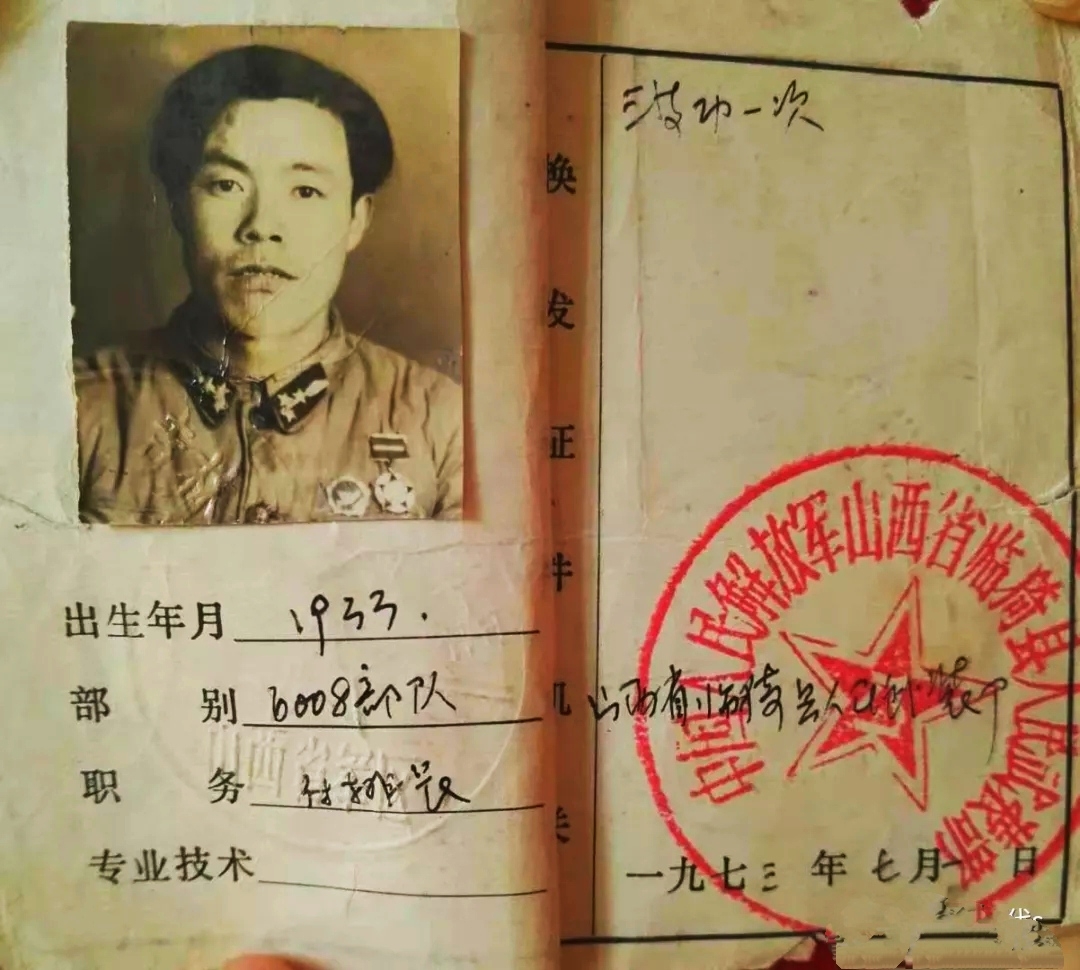 出生年月 1933.
部别 6008部队
职务
专业技术
三等功一次
换发证件机关
山西省临猗县人民武装部
中国人民解放军山西省临猗县人民武装部
一九七三年七月一日
山西省